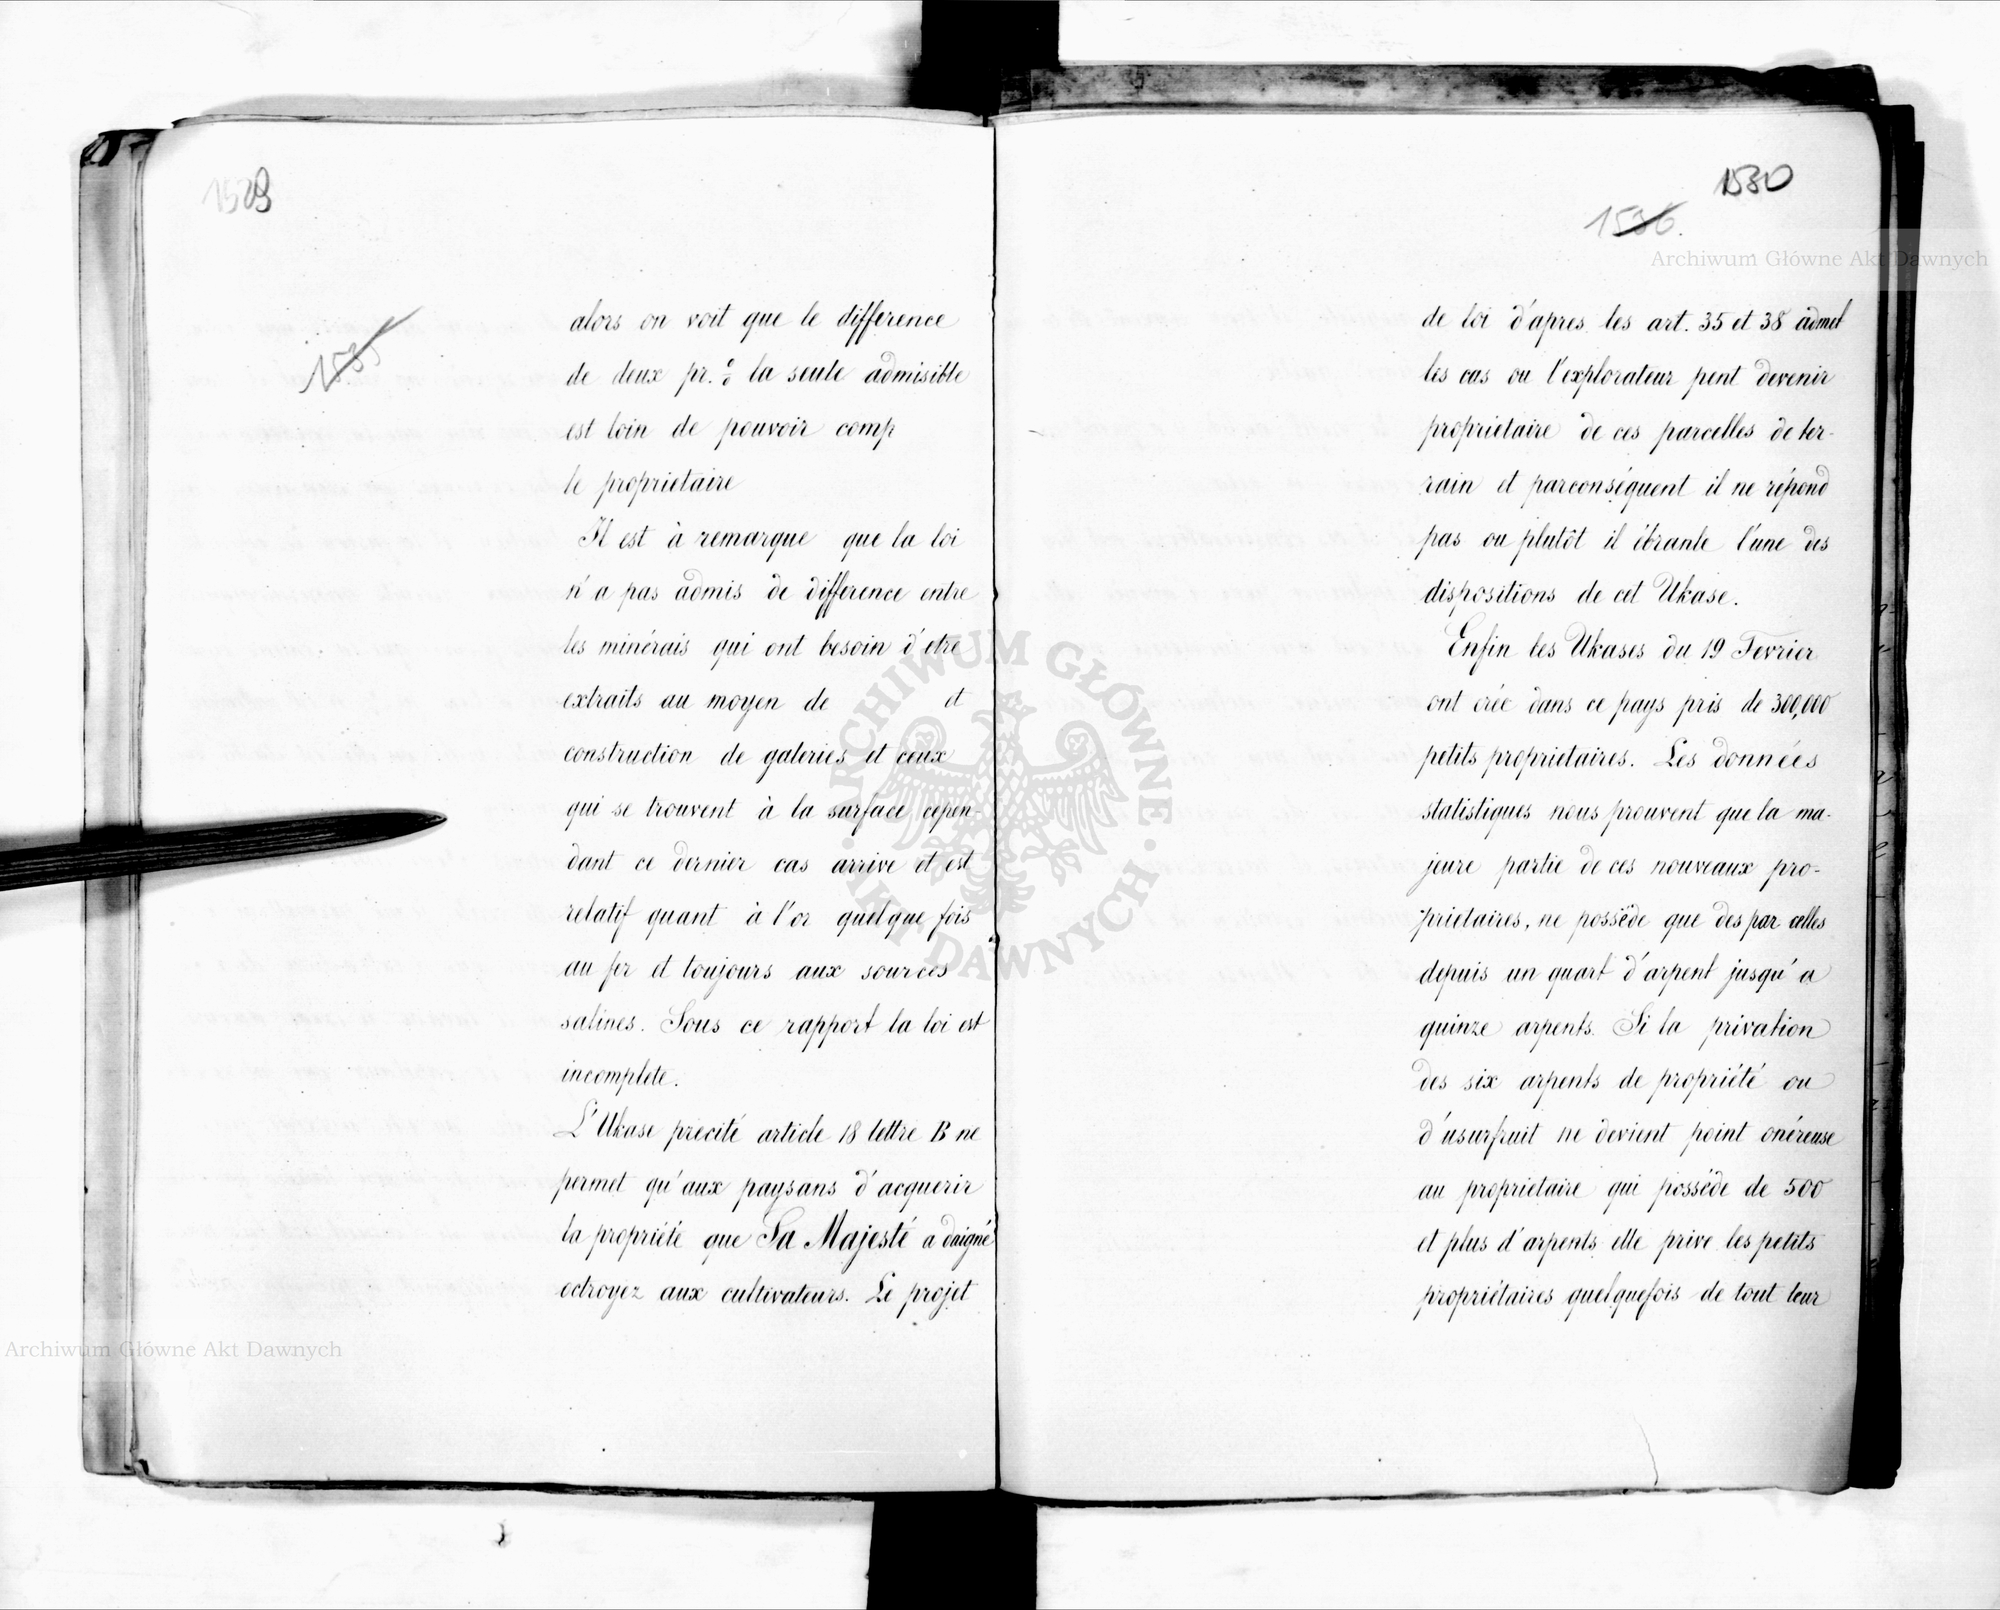 1529
1535
alors on voit que le difference
de deux pr. % la seule admisible
est loin de pouvoir comp
le proprietaire
Il est à remarque que la loi
n'a pas admis de difference entre
les minérais qui ont besoin d'etre
extraits au moyen de et
construction de galeries et ceux
qui se trouvent à la surface cepen
dant ce dernier cas arrive et est
relatif quant à l'or quelque fois
au fer et toujours aux sources
salines. Sous ce rapport la loi est
incomplete.
L'Ukase precité article 18 lettre B ne
permet qu'aux paysans d'acquerir
la propriété que Sa Majesté a daigné
octroyez aux cultivateurs. Le projet
Archiwum Główne Akt Dawnych
1530
1536.
Archiwum Główne Akt Dawnych
de loi d'apres les art. 35 et 38 admet
les cas ou l'explorateur peut devenir
proprietaire de ces parcelles de ter-
rain et parconséquent il ne répond
pas ou plutôt il ébranle l'une des
dispositions de cet Ukase.
Enfin les Ukases du 19 Fevrier
ont crée dans ce pays pris de 300,000
petits proprietaires. Les données
statistiques nous prouvent que la ma-
jeure partie de ces nouveaux pro-
prietaires, ne posséde que des par celles
depuis un quart d'arpent jusqu'a
quinze arpents. Si la privation
des six arpents de propriété ou
d'usurfruit ne devient point onéreuse
au proprietaire qui posséde de 500
et plus d'arpents elle prive les petits
propriétaires quelquefois de tout leur
ARCHIWUM GŁÓWNE
AKT DAWNYCH